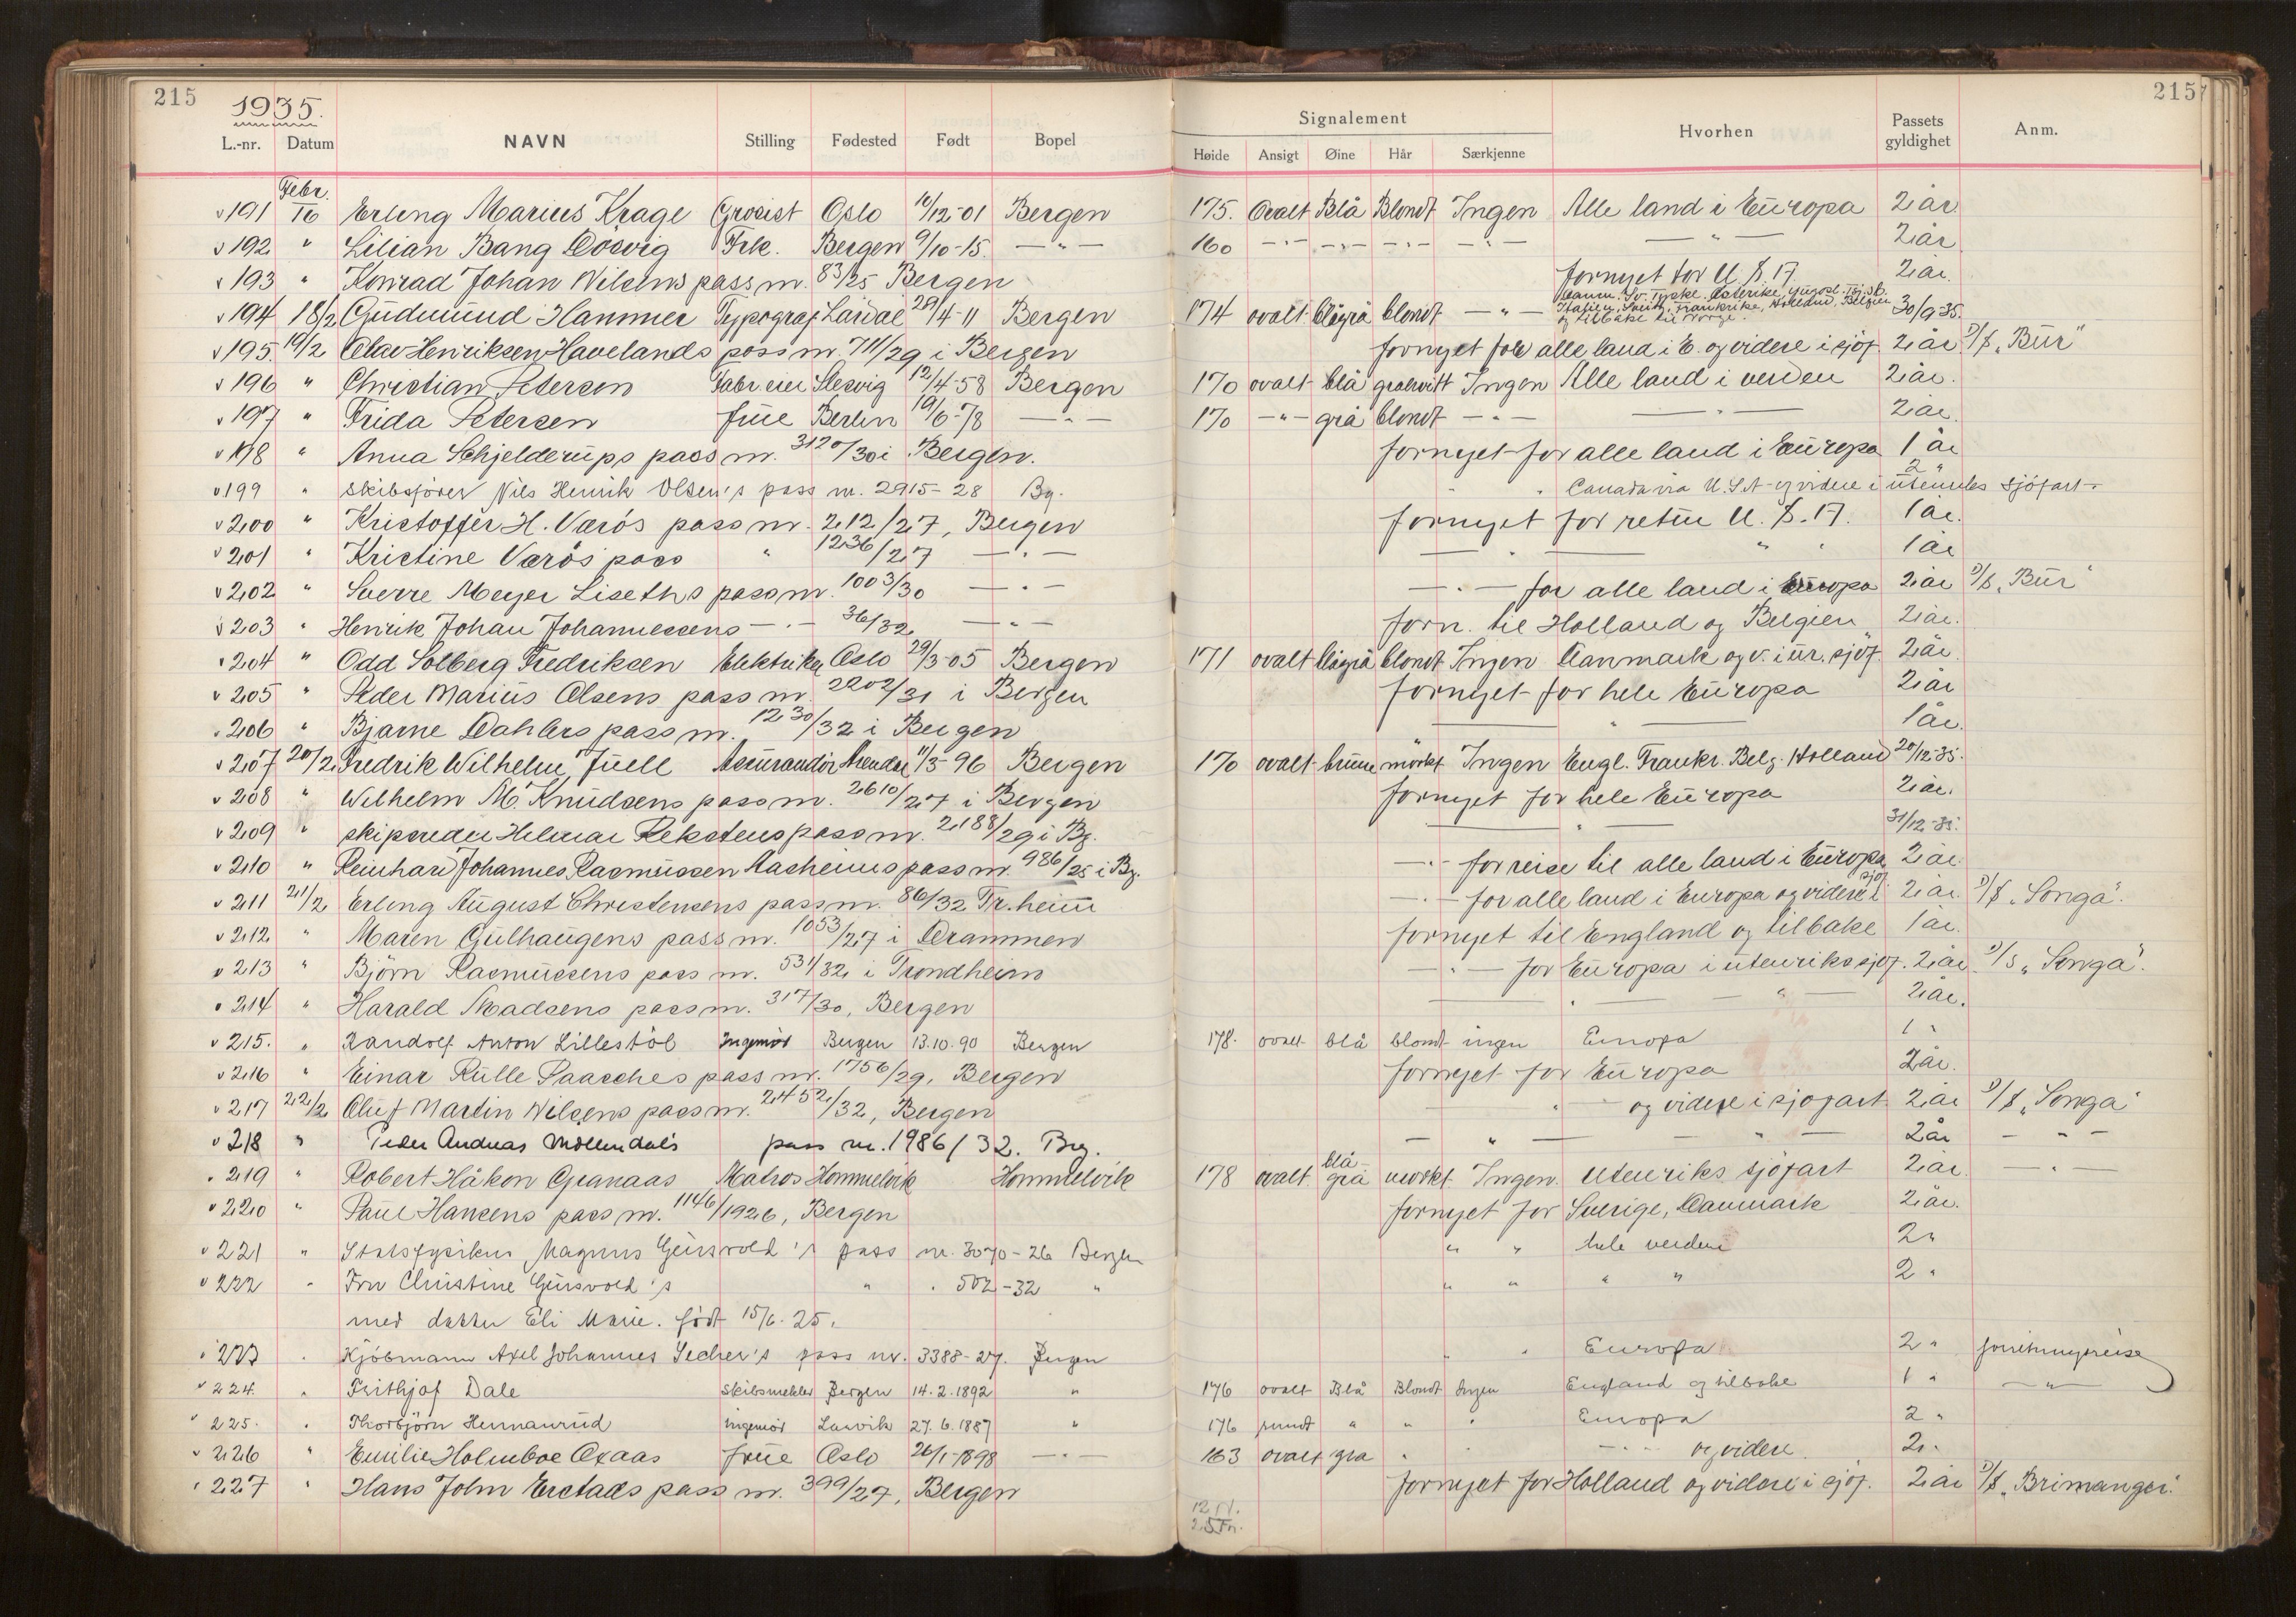 215 215
1935.
Signalement
L.-nr. Datum NAVN Stilling Fødested Født Bopel Høide Ansigt Øine Hår Særkjenne Hvorhen Passets gyldighet Anm.
Febr.
191 16 Erling Marius Krage Grosist Oslo 16/12-01 Bergen 175. Ovalt Blå Blondt Ingen Alle land i Europa 2 år
192 " Lilian Bang Dösvig Frk. Bergen 9/10-15. -"- 160 -"- -"- -"- -"- -"- 2 år
193 " Konrad Johan Nilsens pass nr. 83/25 Bergen fornyet for U.S.A. 2 år.
Danm. Sv. Tyskl. Østerike, Jugosl. Tsj.sl.
194 18/2 Gudmund Hammer Typograf Lärdal 29/4-11 Bergen 174 ovalt blågrå blondt -"- Italien, Sveitz, Frankrike, Holland, Belgien 30/9-35.
og tilbake til Norge.
195. 19/2 Olav Henriksen Havelands pass nr. 711/29 i Bergen fornyet for alle land i E. og videre i sjöf. 2 år D/S „Bur"
196 " Christian Petersen Fabr.eier Slesvig 12/4-58 Bergen 170 ovalt blå gråhvitt Ingen Alle land i verden 2 år.
197 " Frida Petersen frue Berlin 19/6-78 -"- 170 -"- grå blondt -"- -"- 2 år.
198 " Anna Schjelderups pass nr. 3120/30 i Bergen. fornyet for alle land i Europa 1 år
199 " Skibsförer Nils Henrik Olsen's pass nr. 2915-28 Bg. " " Canada via U.S.A. og videre i utenriks sjöfart. 2 "
200 " Kristoffer H. Värös pass nr. 212/27, Bergen fornyet for retur U.S.A. 1 år.
201 " Kristine Värös pass " 1236/27 -"- -"- " " 1 år
202 " Sverre Meyer Liseths pass nr. 1003/30 -"- -"- for alle land i Europa 2 år D/S „Bur"
203 " Henrik Johan Johannessens -"- 36/32 -"- forn. til Holland og Belgien 2 år.
204 " Odd Solberg Fredriksen Elektriker Oslo 29/3-05 Bergen 171 ovalt blågrå blondt Ingen Danmark og v. i ur. sjöf. 2 år.
205 " Peder Marius Olsens pass nr. 2202/31 i Bergen fornyet for hele Europa 2 år
206 " Bjarne Dahlers pass nr. 1230/32 i Bergen -"- 1 år.
207 20/2 Fredrik Wilhelm Juell Assurandör Arendal 11/5-96 Bergen 170 ovalt brune mörkt Ingen Engl. Frankr. Belg. Holland 20/12-35.
208 " Wilhelm M. Knudsens pass nr. 2610/27 i Bergen fornyet for hele Europa 2 år.
209 " skipsreder Hilmar Rekstens pass nr. 2188/29 i Bg. -"- 31/12-35.
210 " Reinhard Johannes Rasmussen Aasheims pass nr. 986/25 i Bg. -"- for reise til alle land i Europa 2 år.
211 21/2 Erling August Christensens pass nr. 86/32 Tr.heim -"- for alle land i Europa og videre i sjöf 2 år. D/S „Songa".
212 " Maren Gulhaugens pass nr. 1053/27 i Drammen fornyet til England og tilbake 1 år.
213 " Björn Rasmussens pass nr. 531/32 i Trondheim -"- for Europa i utenrikssjöf. 2 år D/S „Songa".
214 " Harald Madsens pass nr. 317/30, Bergen -"- -"- 2 år.
215. " Randolf Anton Lillestöl Ingeniör Bergen 13.10.90 Bergen 178. ovalt blå blondt ingen Europa 1 "
216 " Einar Rulle Paasches pass nr. 1756/29, Bergen fornyet for Europa 2 år.
217 22/2 Oluf Martin Nilsens pass nr. 2452/32, Bergen -"- og videre i sjöfart 2 år D/S „Songa"
218 " Peder Andreas Möllendal's pass nr. 1986/32. Brg. -"- -"- 2 år -"-
219 " Robert Håkon Granaas Matros Hommelvik Hommelvik 178 ovalt blågrå mörkt Ingen. Utenriks sjöfart 2 år. -"-
220 " Paul Hansens pass nr. 1146/1926, Bergen fornyet for Sverige, Danmark 2 år.
221 " Statsfysikus Magnus Gjersvold's pass nr. 3070-26 Bergen " " hele verden 2 "
222 " Fru Christine Gjersvold's " " 502-32 " " " " " 2 "
med datter Eli Marie. född 15/6-25.
223 " Kjöbmann Axel Johannes Secher's pass nr. 3388-27. Bergen " " Europa 2 " forretningsreise
224. " Frithjof Dale Skibsmekler Bergen 14.2.1892 " 176 ovalt Blå Blondt Ingen England og tilbake 1 " -"-
225. " Thorbjörn Hermanrud Ingeniör Larvik 27.6.1887 " 176 rundt " " " Europa 2 "
226 " Emilie Holmboe Oxaas frue Oslo 26/1-1898 -"- 163 ovalt grå " " -"- og videre 2 "
227 " Hans John Erstads pass nr. 399/27, Bergen fornyet for Holland og videre i sjöf. 2 år D/S „Brimanger".
12 N.
25 Fn.